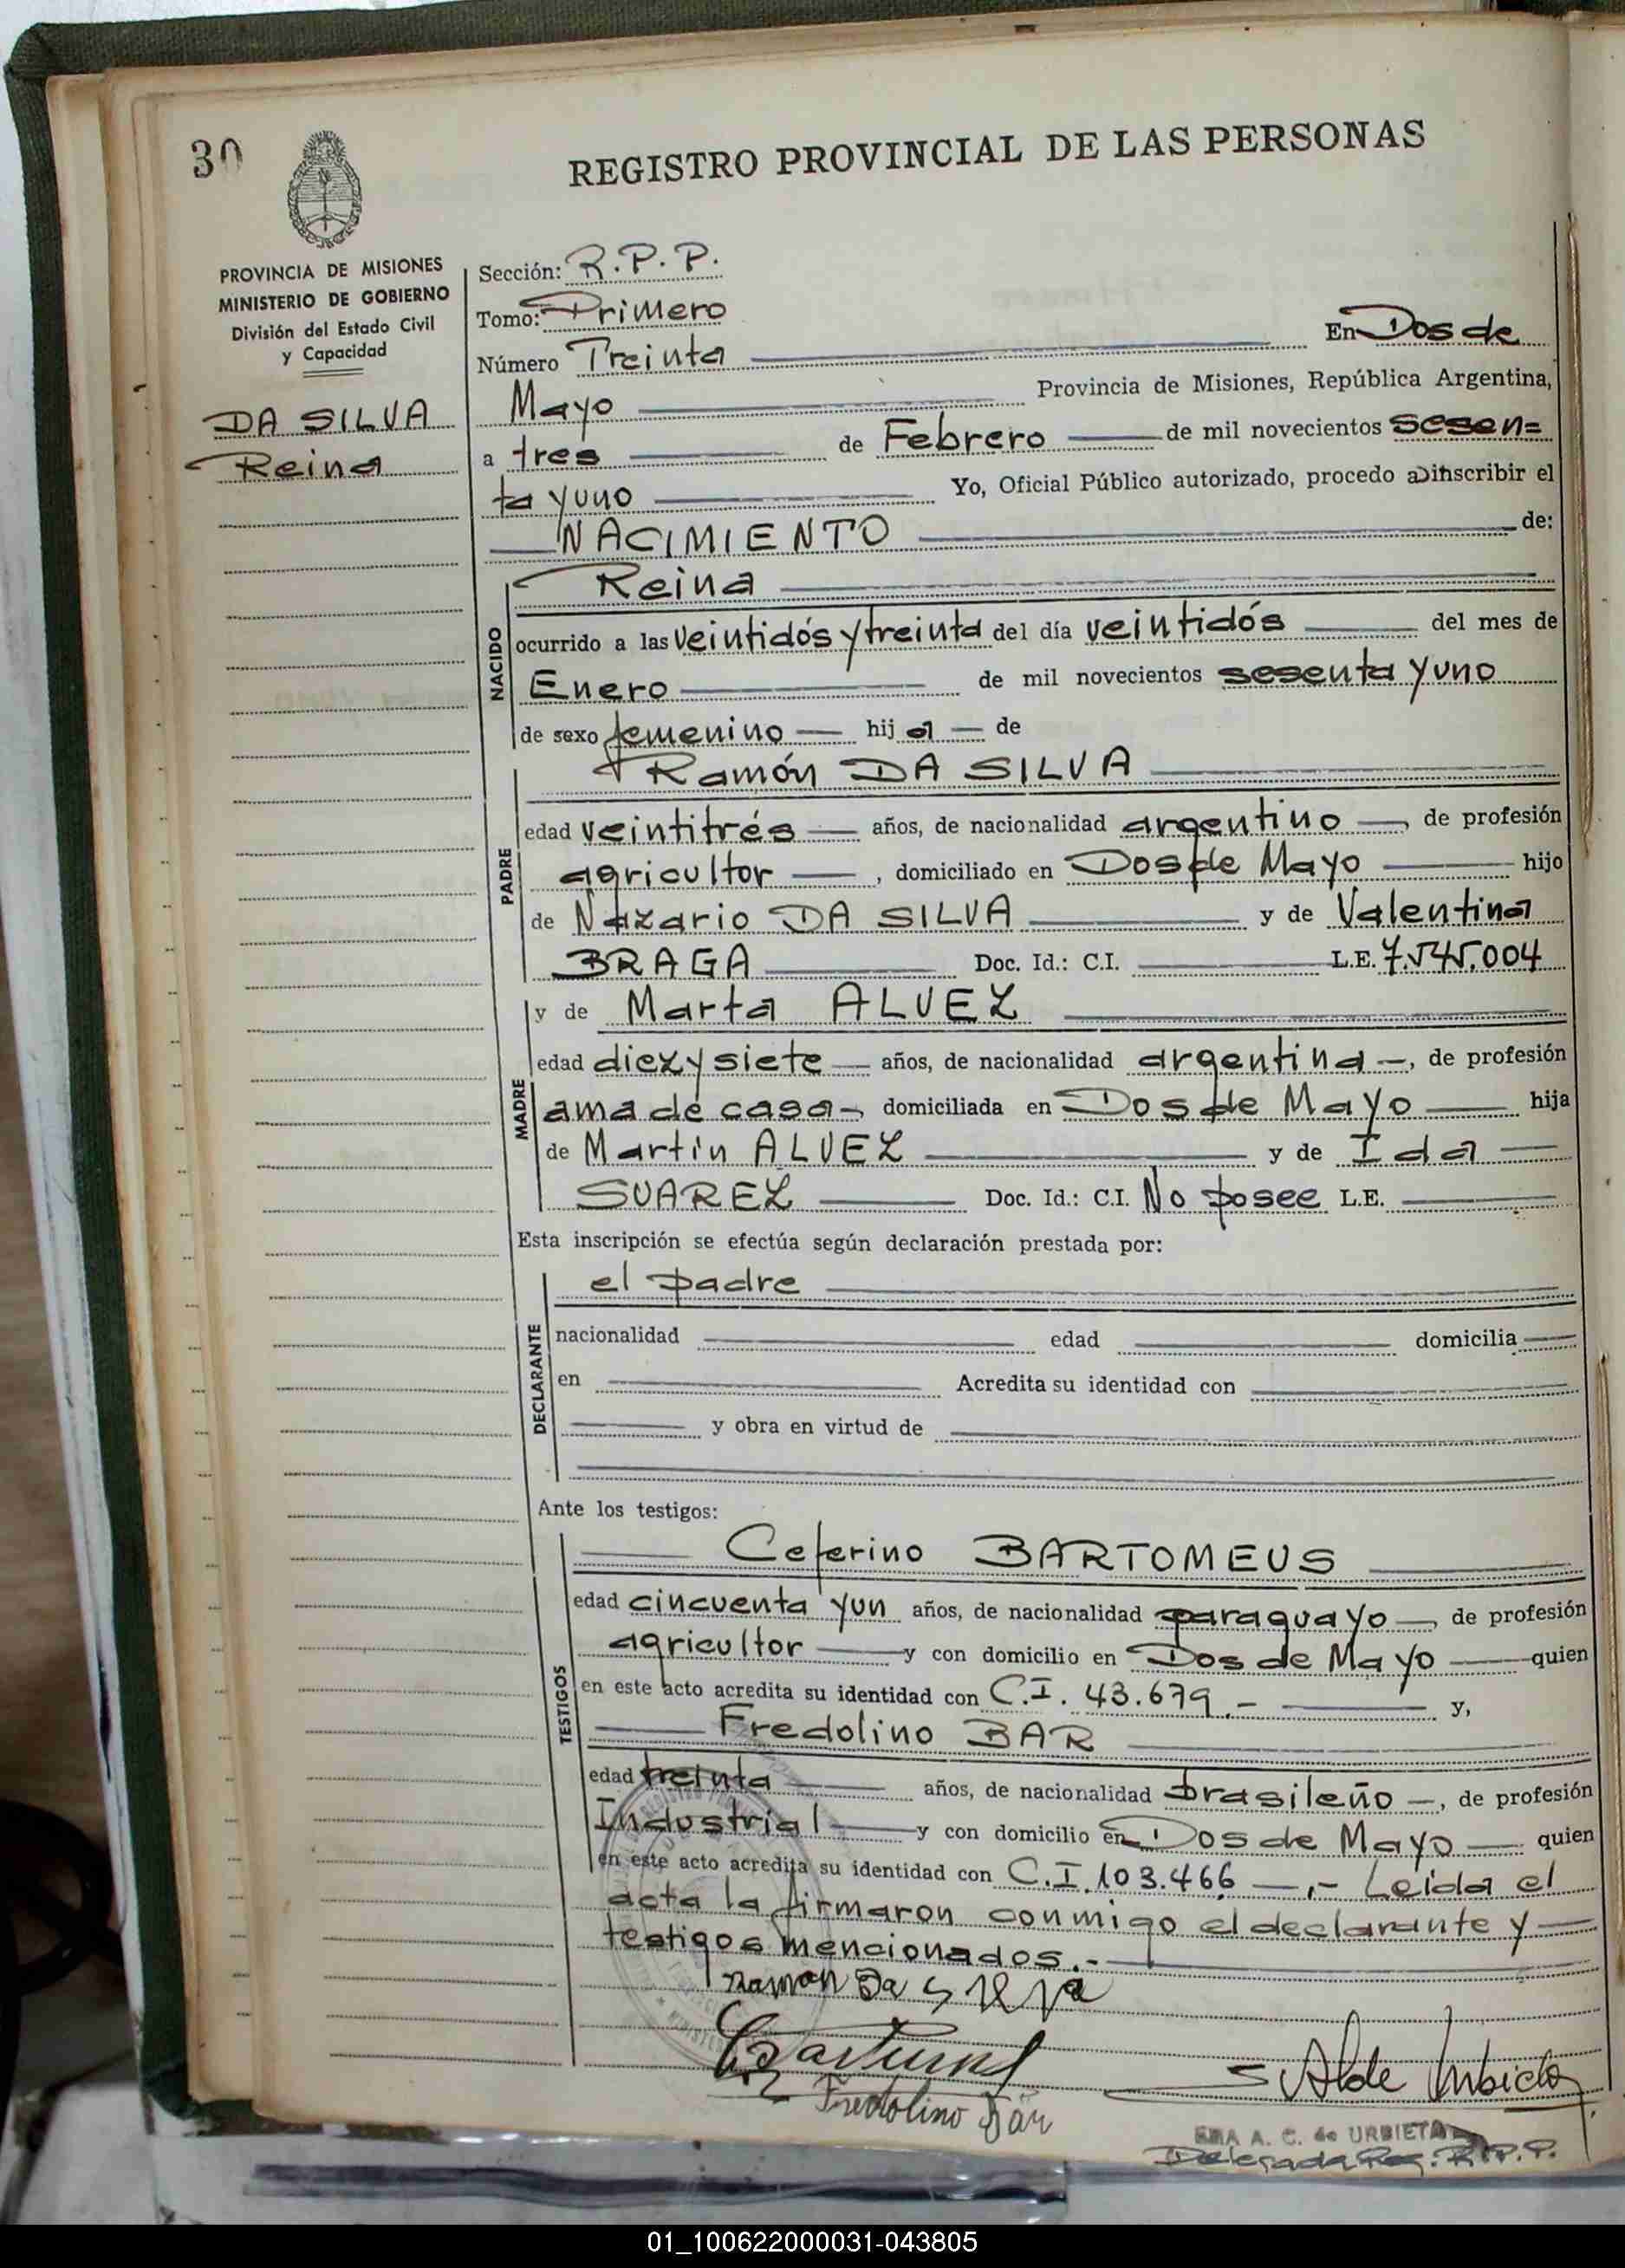 30
REGISTRO PROVINCIAL DE LAS PERSONAS
PROVINCIA DE MISIONES
MINISTERIO DE GOBIERNO
División del Estado Civil
y Capacidad
DA SILVA
Reina
Sección: R.P.P.
Tomo: Primero
Número Treinta En Dos de
Mayo Provincia de Misiones, República Argentina,
a tres de Febrero de mil novecientos sesen=
ta y uno Yo, Oficial Público autorizado, procedo a inscribir el
NACIMIENTO de:
NACIDO
Reina
ocurrido a las veintidós y treinta del día veintidós del mes de
Enero de mil novecientos sesenta y uno
de sexo femenino hij a de
PADRE
Ramón DA SILVA
edad veintitrés años, de nacionalidad argentino, de profesión
agricultor, domiciliado en Dos de Mayo hijo
de Nazario DA SILVA y de Valentina
BRAGA Doc. Id.: C.I. L.E. 7.545.004
MADRE
y de Marta ALVEZ
edad diez y siete años, de nacionalidad argentina, de profesión
ama de casa, domiciliada en Dos de Mayo hija
de Martín ALVEZ y de Ida
SUAREZ Doc. Id.: C.I. No posee L.E.
Esta inscripción se efectúa según declaración prestada por:
DECLARANTE
el padre
nacionalidad edad domicilia
en Acredita su identidad con
y obra en virtud de
Ante los testigos:
TESTIGOS
Ceferino BARTOMEUS
edad cincuenta y un años, de nacionalidad paraguayo, de profesión
agricultor y con domicilio en Dos de Mayo quien
en este acto acredita su identidad con C.I. 43.679.- y,
Fredolino BAR
edad treinta años, de nacionalidad brasileño, de profesión
Industrial y con domicilio en Dos de Mayo quien
en este acto acredita su identidad con C.I. 103.466 .- Leída el
acta la firmaron conmigo el declarante y
testigos mencionados.-
Ramon Da Silva
Fredolino Bär
A. C. de URBIETA
Delegada Reg. R.P.P.
01_100622000031-043805